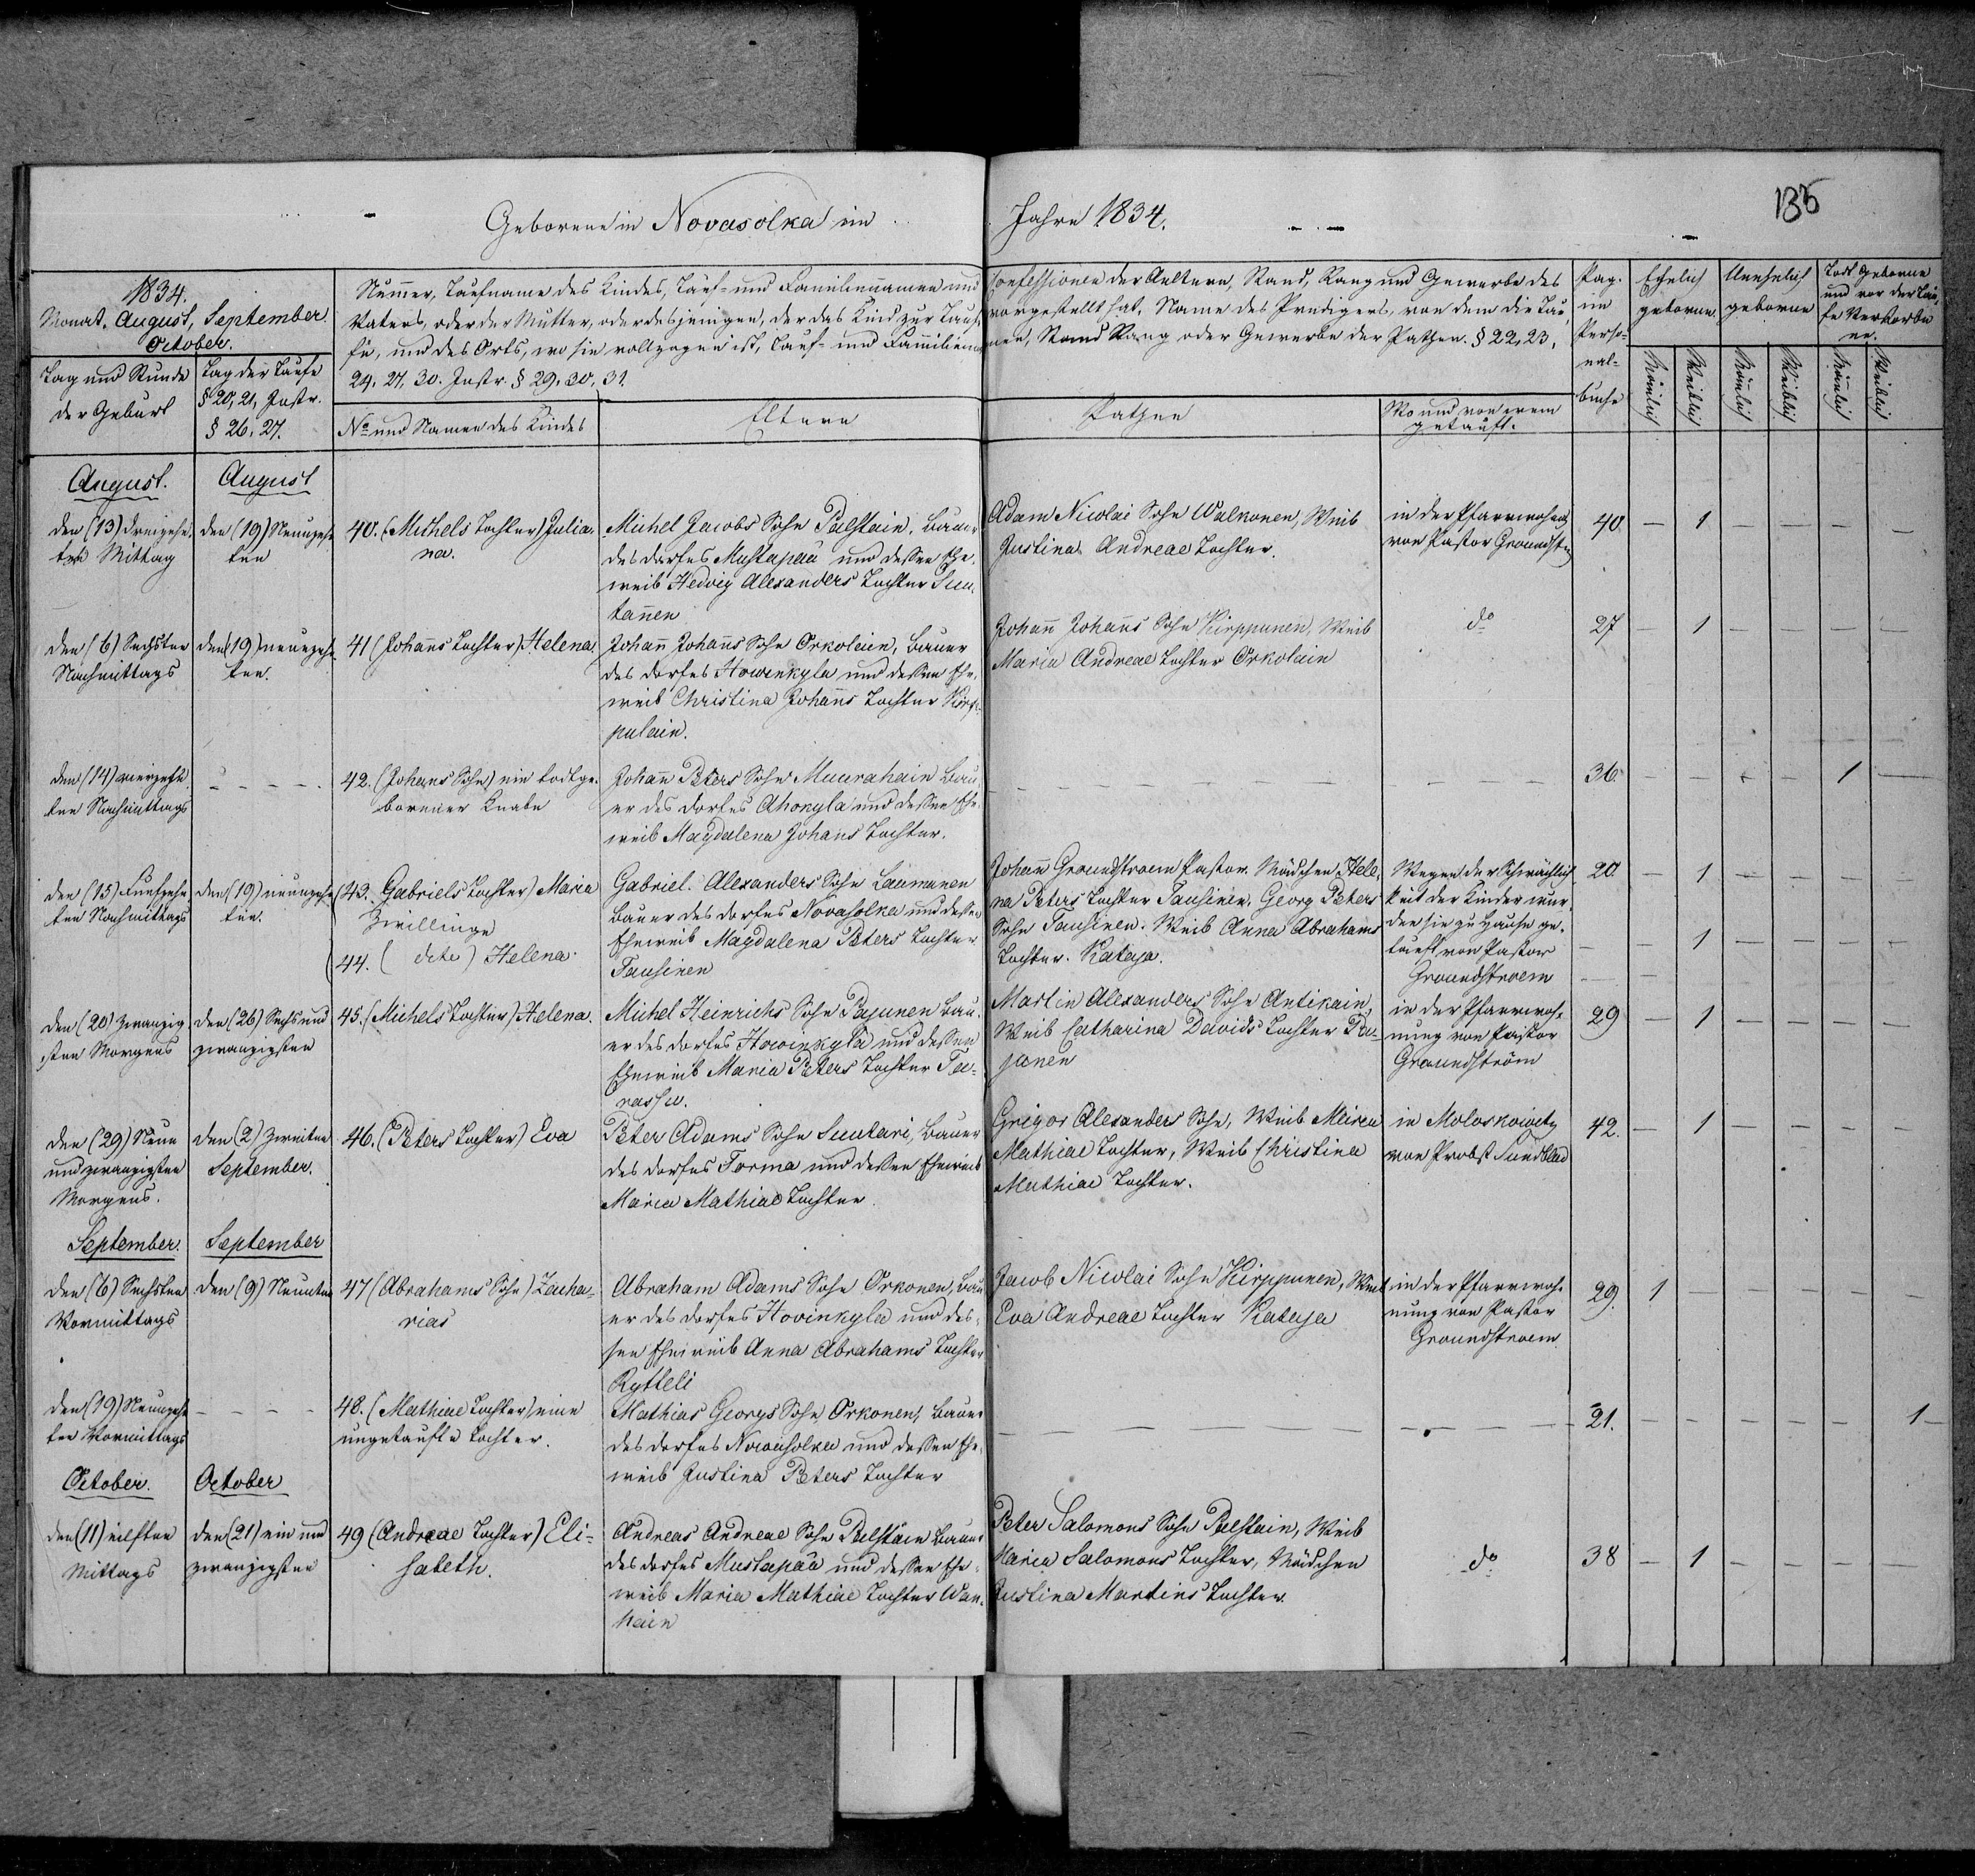 Geborene in Novasolka im Jahre 1834.
136
1834.
Monat. August, September
October.
Tag und Stunde
der Geburt
Tag der Taufe
§ 20, 21, Instr.
§ 26, 27.
Numer, Taufname des Kindes, Tauf- und Familiennamen und Confessionen der Aeltern, Stand, Rang und Gewerbe des
Vaters, oder der Mutter, oder desjenigen, der das Kind zur Taufe vorgestellt hat, Name des Predigers, von dem die Tau-
fe, und des Orts, wo sie vollzogen ist, Tauf- und Familienna-men, Stand Rang oder Gewerbe der Pathen. § 22, 23,
24, 27, 30. Instr. § 29, 30, 31.
No und Namen des Kindes
Eltern
Pathen
Wo und von wem
getauft.
Pag.
im
Perso-
nal-
buche
Ehelich
geborene.
Unehelich
geborene
Todt Geborene
und vor der Tau-
fe Verstorbe
ne.
Mänlich
Weiblich
Mänlich
Weiblich
Mänlich
Weiblich
August.
August
den (13) dreizehn-
ten Mittag
den (19) Neunzehn
ten
40. (Michels Tochter) Julia-
na.
Michel Jacobs Sohn Pälstain, Bauer
des dorfes Mustapää und dessen Ehe-
weib Hedvig Alexanders Tochter Suu-
tanen
Adam Nicolai Sohn Walkonen, Weib
Justina Andreae Tochter.
in der Pfarrwohng
von Pastor Groundstr
40. — 1 — — — —
den (6) Sechsten
Nachmittags
den (19) neunzehn
ten.
41 (Johans Tochter) Helena
Johann Johanns Sohn Orkolain, Bauer
des dorfes Howinkyla und dessen Ehe-
weib Christina Johanns Tochter Kirp-
pulain.
Johann Johanns Sohn Kirppunen, Weib
Maria Andreae Tochter Orkolain
do
27 — 1 — — — —
den (14) vierzehn
ten Nachmittags
- - - -
42. (Johans Sohn) ein todtge-
borener Knabe
Johann Peters Sohn Muurahain Bau-
er des dorfes Ahokyla und dessen Ehe-
weib Magdalena Johans Tochter.
36. — — — — 1 —
den (15) Funfzehn
ten Nachmittags
den (19) neunzehn
ten.
(43. Gabriels Tochter) Maria
Zwillinge
(44. ( dito ) Helena
Gabriel Alexanders Sohn Laumanen
Bauer des dorfes Novasolka und dessen
Eheweib Magdalena Peters Tochter
Tausinen
Johann Groundstroem Pastor. Mädchen Hele-
na Peters Tochter Tausinen. Georg Peters
Sohn Tausinen. Weib Anna Abrahams
Tochter Kataja.
Wegen der Schwächlich-
keit der Kinder wur-
den sie zu Hause ge-
tauft von Pastor
Groundstroem
20 — 1 — — — —
— — 1 — — — —
den (20) zwanzig
sten Morgens
den (26) Sechs und
zwanzigsten
45. (Michels Tochter) Helena.
Michel Heinrichs Sohn Pajunen Bau-
er des dorfes Howinkyla und dessen
Eheweib Maria Peters Tochter Ta-
rassu.
Martin Alexanders Sohn Antikain,
Weib Catharina Davids Tochter Pa-
junen
in der Pfarrwoh-
nung von Pastor
Groundström
29 — 1 — — — —
den (29) Neun
und zwanzigsten
Morgens.
den (2) Zweiten
September.
46. (Peters Tochter) Eva
Peter Adams Sohn Suutari, Bauer
des dorfes Torma und dessen Eheweib
Maria Mathiae Tochter
Grigor Alexanders Sohn, Weib Maria
Mathiae Tochter, Weib Christina
Mathiae Tochter.
in Moloskowitz
von Probst Sundblad
42. — 1 — — — —
September.
September
den (6) Sechsten
Vormittags
den (9) Neunten
47 (Abrahams Sohn) Zacha-
rias
Abraham Adams Sohn Orkonen, Bau
er des dorfes Hovinkyla und des-
sen Eheweib Anna Abrahams Tochter
Rytteli
Jacob Nicolai Sohn Kirppunen, Weib
Eva Andreae Tochter Kataja
in der Pfarrwoh-
nung von Pastor
Groundstroem
29. 1 — — — — —
den (19) Neunzehn
ten Vormittags
- - - -
48. (Mathiae Tochter) eine
ungetaufte Tochter.
Mathias Georgs Sohn Orkonen, Bauer
des dorfes Nowasolka und dessen Ehe-
weib Justina Peters Tochter
21. — — — — — 1
October.
October
den (11) eilften
Mittags
den (21) ein und
zwanzigsten
49 (Andreae Tochter) Eli-
sabeth.
Andreas Andreae Sohn Pälstain Bauer
des dorfes Mustapää und dessen Ehe-
weib Maria Mathiae Tochter Wan-
hain
Peter Salomons Sohn Pälstain, Weib
Maria Salomons Tochter, Mädchen
Justina Martins Tochter
do
38 — 1 — — — —